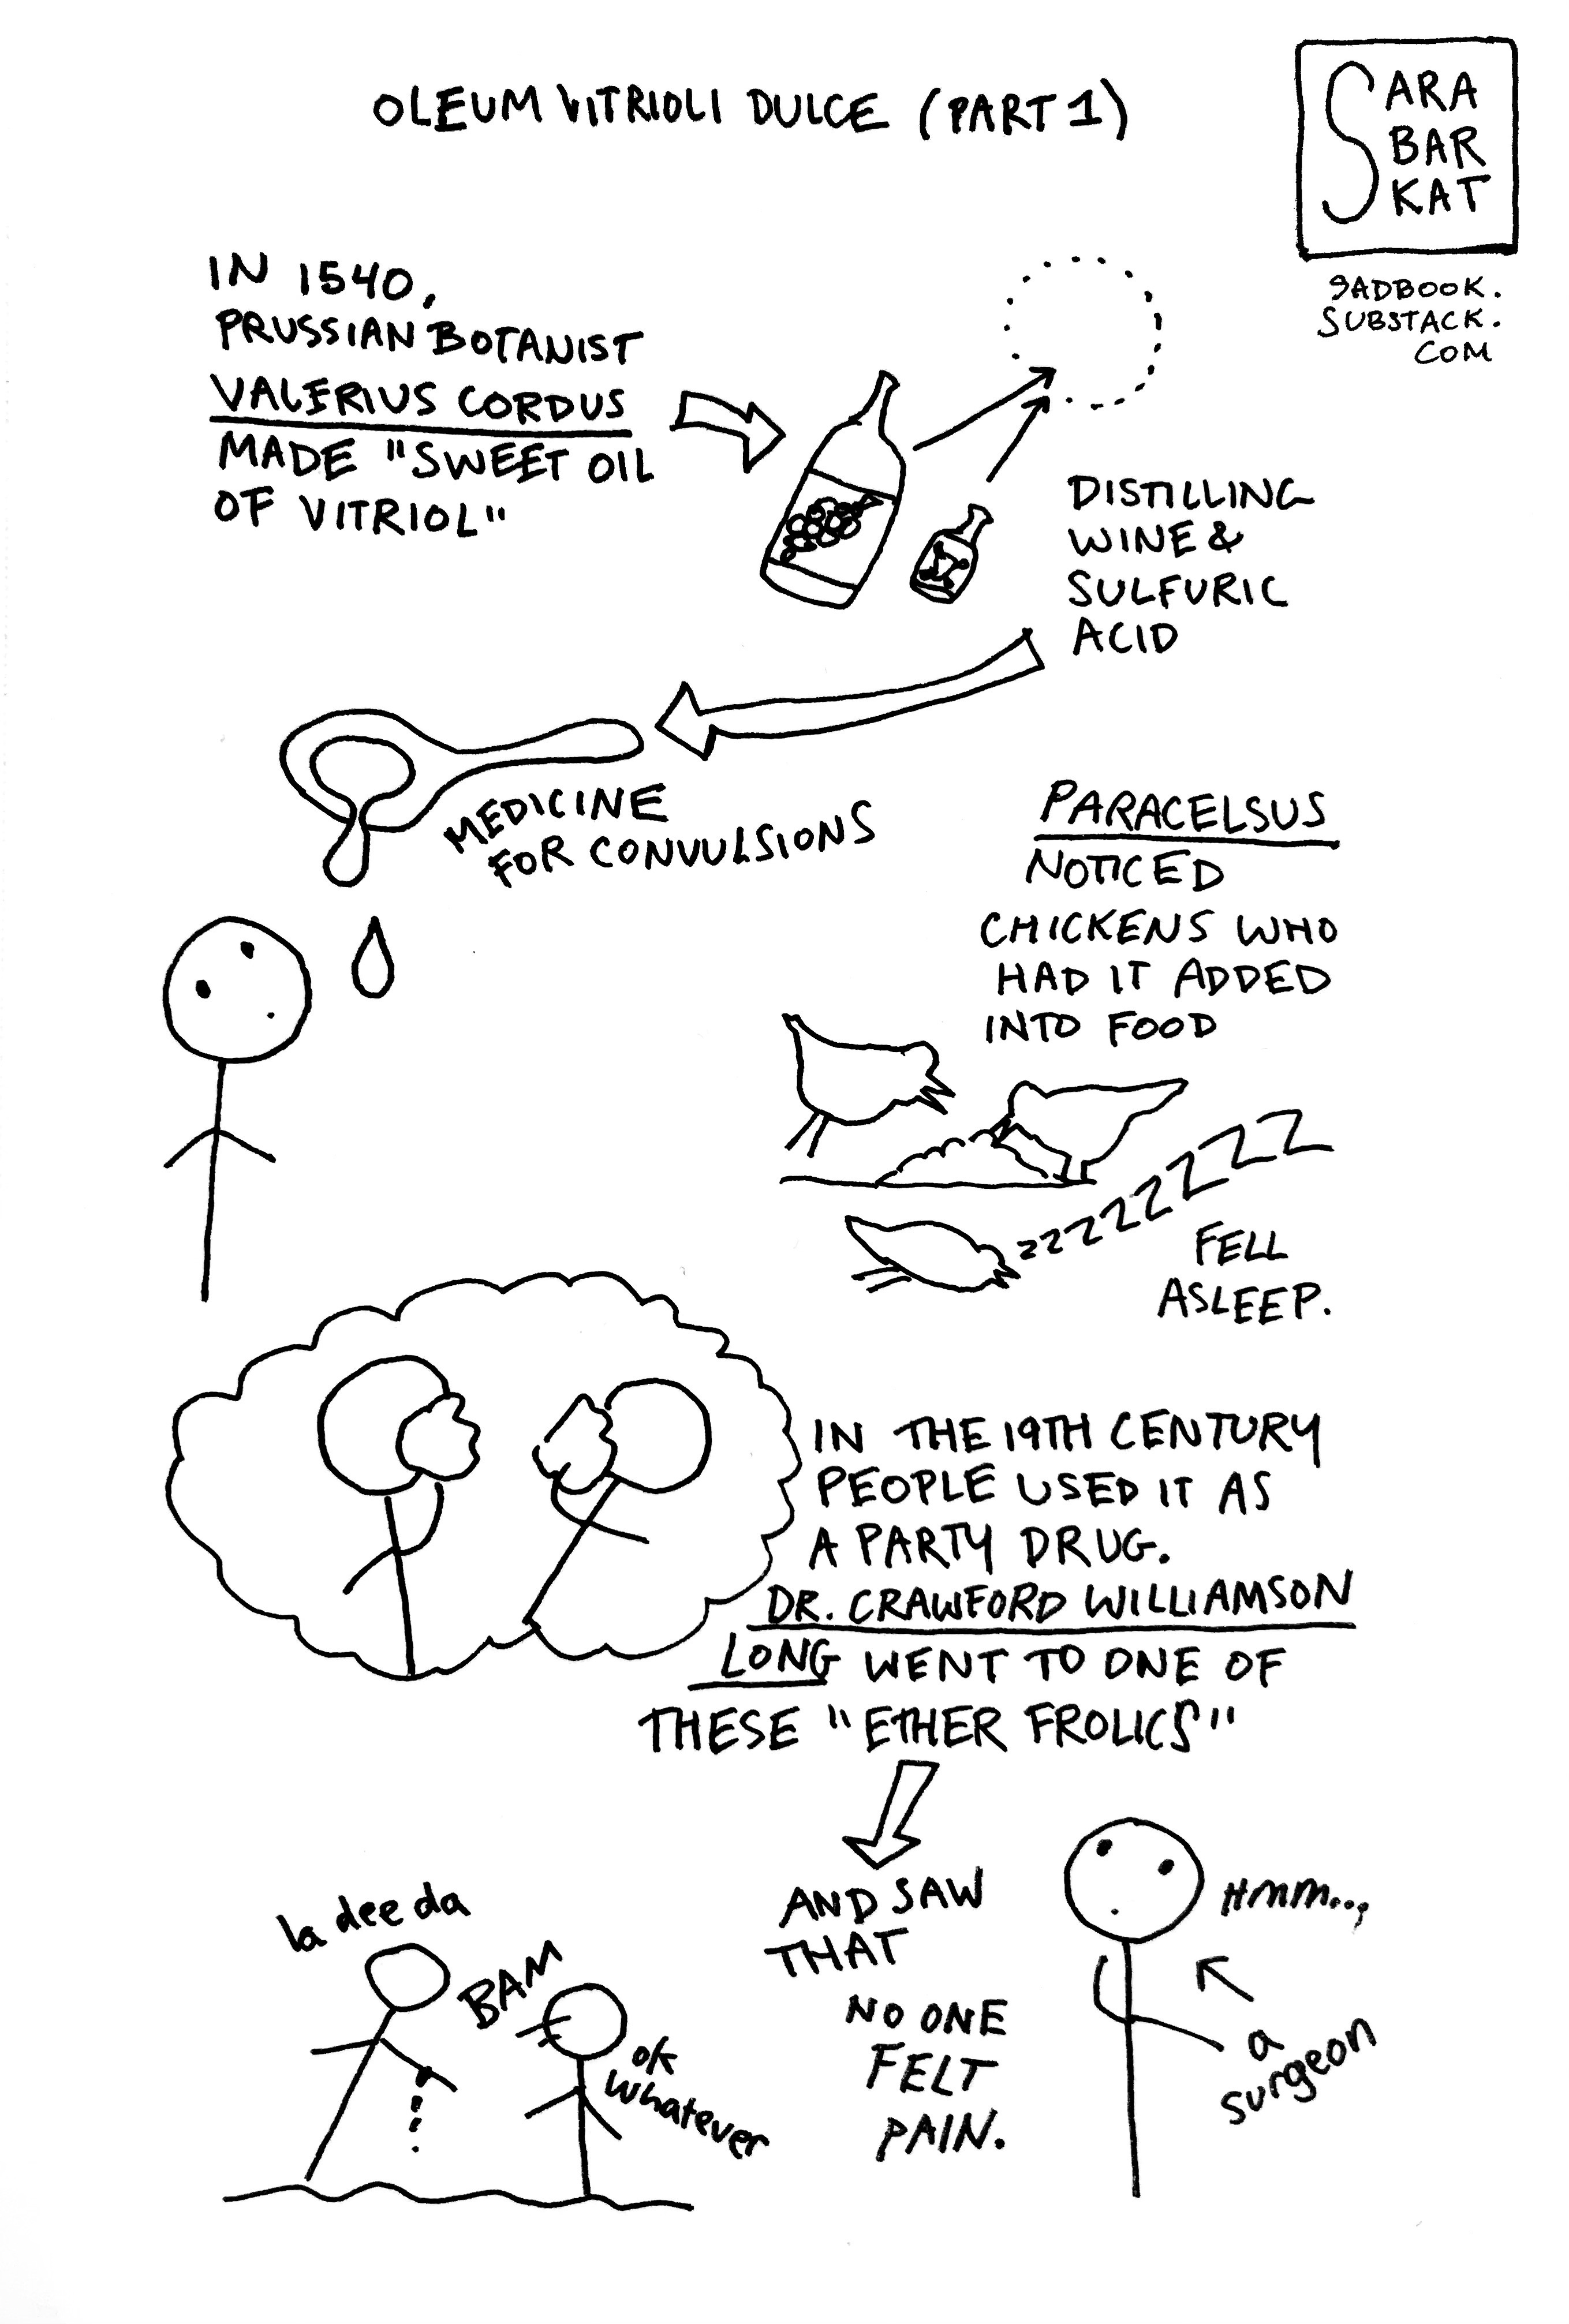 OLEUM VITRIOLI DULCE (PART 1)
SARA
BAR
KAT
SADBOOK.
SUBSTACK.
COM
IN 1540,
PRUSSIAN BOTANIST
VALERIUS CORDUS
MADE "SWEET OIL
OF VITRIOL"
DISTILLING
WINE &
SULFURIC
ACID
MEDICINE
FOR CONVULSIONS
PARACELSUS
NOTICED
CHICKENS WHO
HAD IT ADDED
INTO FOOD
ZZZZZZZZZ
FELL
ASLEEP.
IN THE 19TH CENTURY
PEOPLE USED IT AS
A PARTY DRUG.
DR. CRAWFORD WILLIAMSON
LONG WENT TO ONE OF
THESE "ETHER FROLICS"
AND SAW
THAT
NO ONE
FELT
PAIN.
la dee da
BAM
ok
whatever
Hmm...
a
surgeon